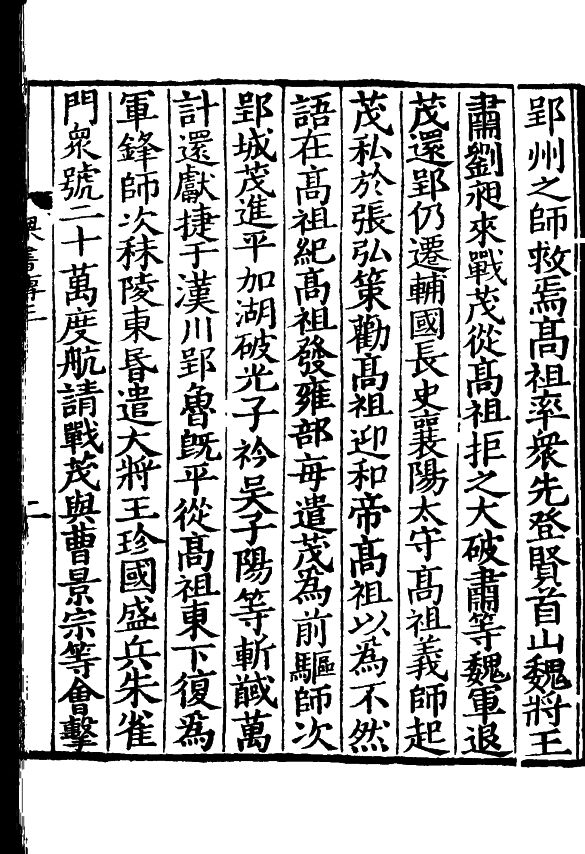 郢州之師救焉髙祖率衆先登賢首山魏將王
肅劉昶來戰茂從髙祖拒之大破肅等魏軍退
茂還郢仍遷輔國長史襄陽太守髙祖義師起
茂私於張弘策勸髙祖迎和帝髙祖以為不然
語在髙祖紀髙祖發雍部每遣茂為前驅師次
郢城茂進平加湖破光子衿吳子陽等斬馘萬
計還獻捷于漢川郢魯旣平從髙祖東下復為
軍鋒師次秣陵東昏遣大將王珍國盛兵朱雀
門衆號二十萬度航請戰茂與曹景宗等會擊
梁書傳三
二